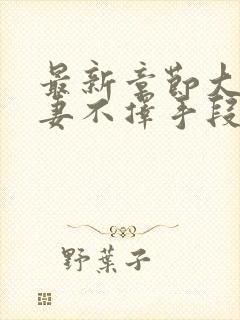 最新章节大
妻不择手段
野葉子